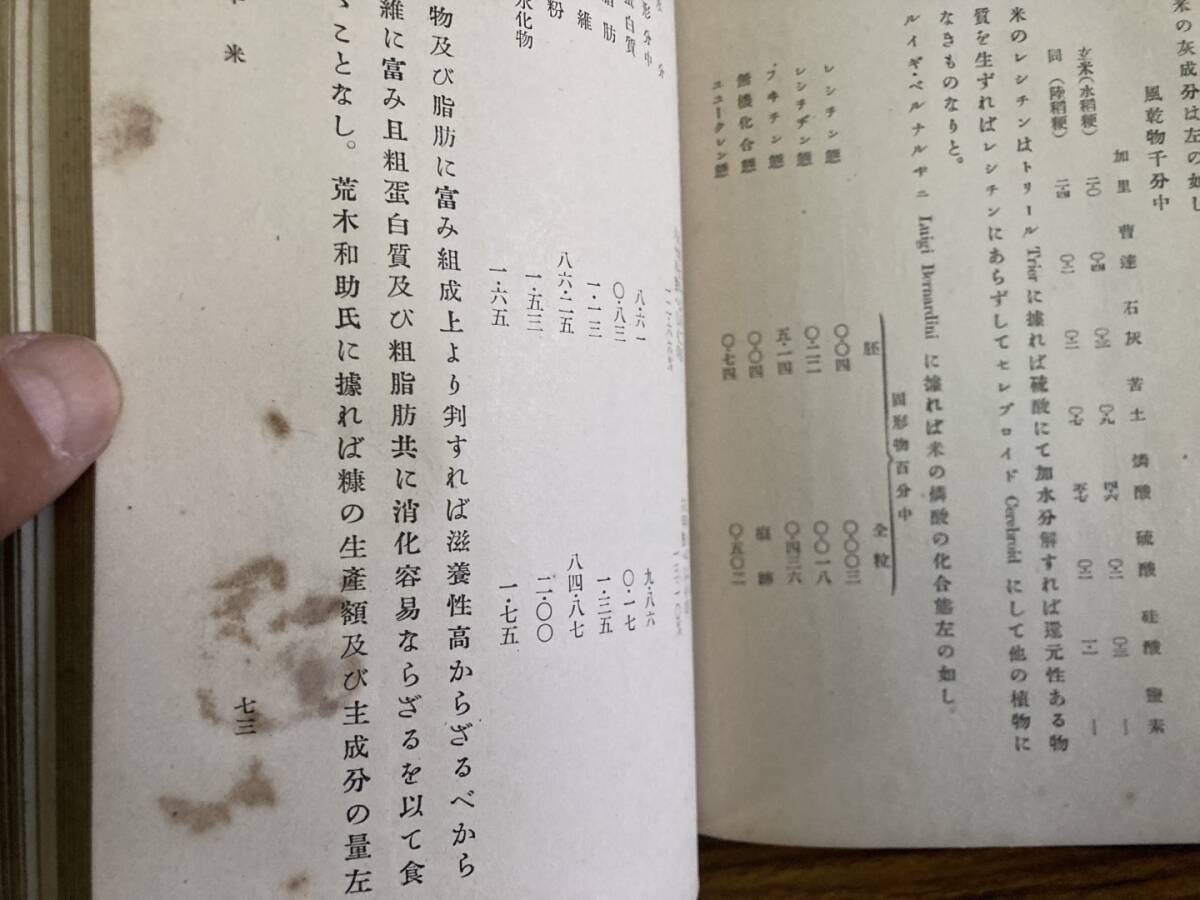 米の灰成分は左の如し
風乾物千分中
加里 曹達 石灰 苦土 燐酸 硫酸 硅酸 鹽素
玄米(水稻粳)
同 (陸稻粳)
米のレシチンはトリール Trier に據れば硫酸にて加水分解すれば還元性ある物
質を生ずればレシチンにあらずしてセレブロイド Cerebroid にして他の植物に
なきものなりと。
ルイギ・ベルナルヂニ Luigi Bernardini に據れば米の燐酸の化合態左の如し。
固形物百分中
胚 全粒
レシチン態 〇・〇四 〇・〇〇三
レシチヂン態 〇・二二 〇・〇一八
フヰチン態 五・一四 〇・四三六
無機化合態 〇・〇四 痕跡
ニユークレン態 〇・七四 〇・五〇二
分
八・六一 九・八六
蛋白質 〇・八三 〇・一七
脂肪 一・一三 一・三五
維 八六・二五 八四・八七
粉 一・五三 二・〇〇
水化物 一・六五 一・七五
物及び脂肪に富み組成上より判すれば滋養性高からざるべから
維に富み且粗蛋白質及び粗脂肪共に消化容易ならざるを以て食
ゝことなし。荒木和助氏に據れば糠の生產額及び主成分の量左
米
七三